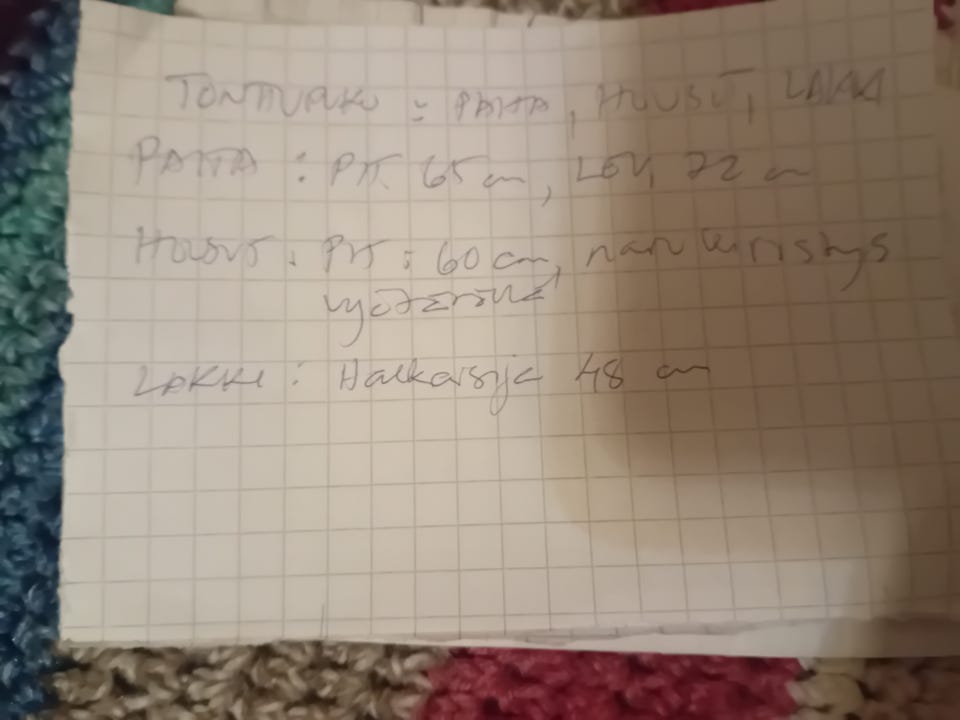 TONTTUPUKU : PAITA, HOUSUT, LAKKI
PAITA : PIT. 65 cm, LEV. 72 cm
HOUSUT : PIT : 60 cm, narukiristys
vyötäröllä
LAKKI : Halkaisija 48 cm